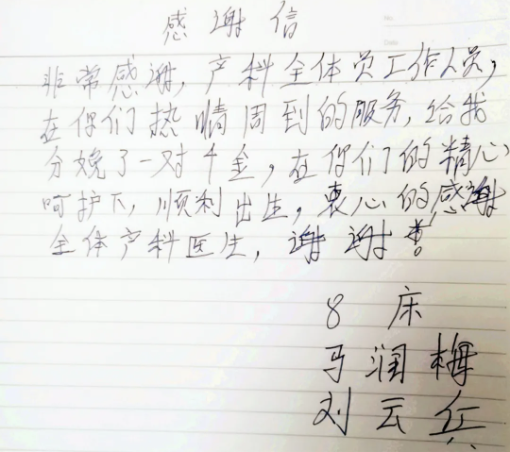 感谢信
非常感谢，产科全体员工作人员，
在你们热情周到的服务，给我
分娩了一对千金，在你们的精心
呵护下，顺利出生，衷心的感谢
全体产科医生，谢谢！
8床
马润梅
刘云兵